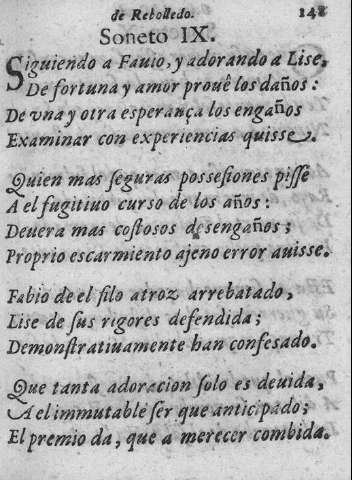 de Rebolledo.
148
Soneto IX.
Siguiendo a Fauio, y adorando a Lise,
De fortuna y amor prouê los daños:
De vna y otra esperança los engaños
Examinar con experiencias quisse.
Quien mas ſeguras possesiones piſſe
A el fugitiuo curso de los años:
Deuera mas coſtosos desengaños;
Proprio escarmiento ajeno error auisse.
Fabio de el filo atroz arrebatado,
Lise de ſus rigores defendida;
Demonſtratiuamente han confesado.
Que tanta adoracion ſolo es deuida,
A el immutable ſer que anticipado;
El premio da, que a merecer combida.